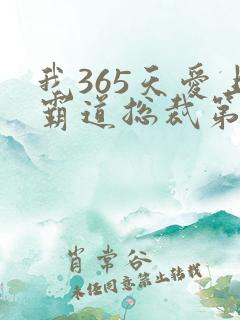 我365天爱上
霸道总裁第
肖常谷
未经同意禁止转载